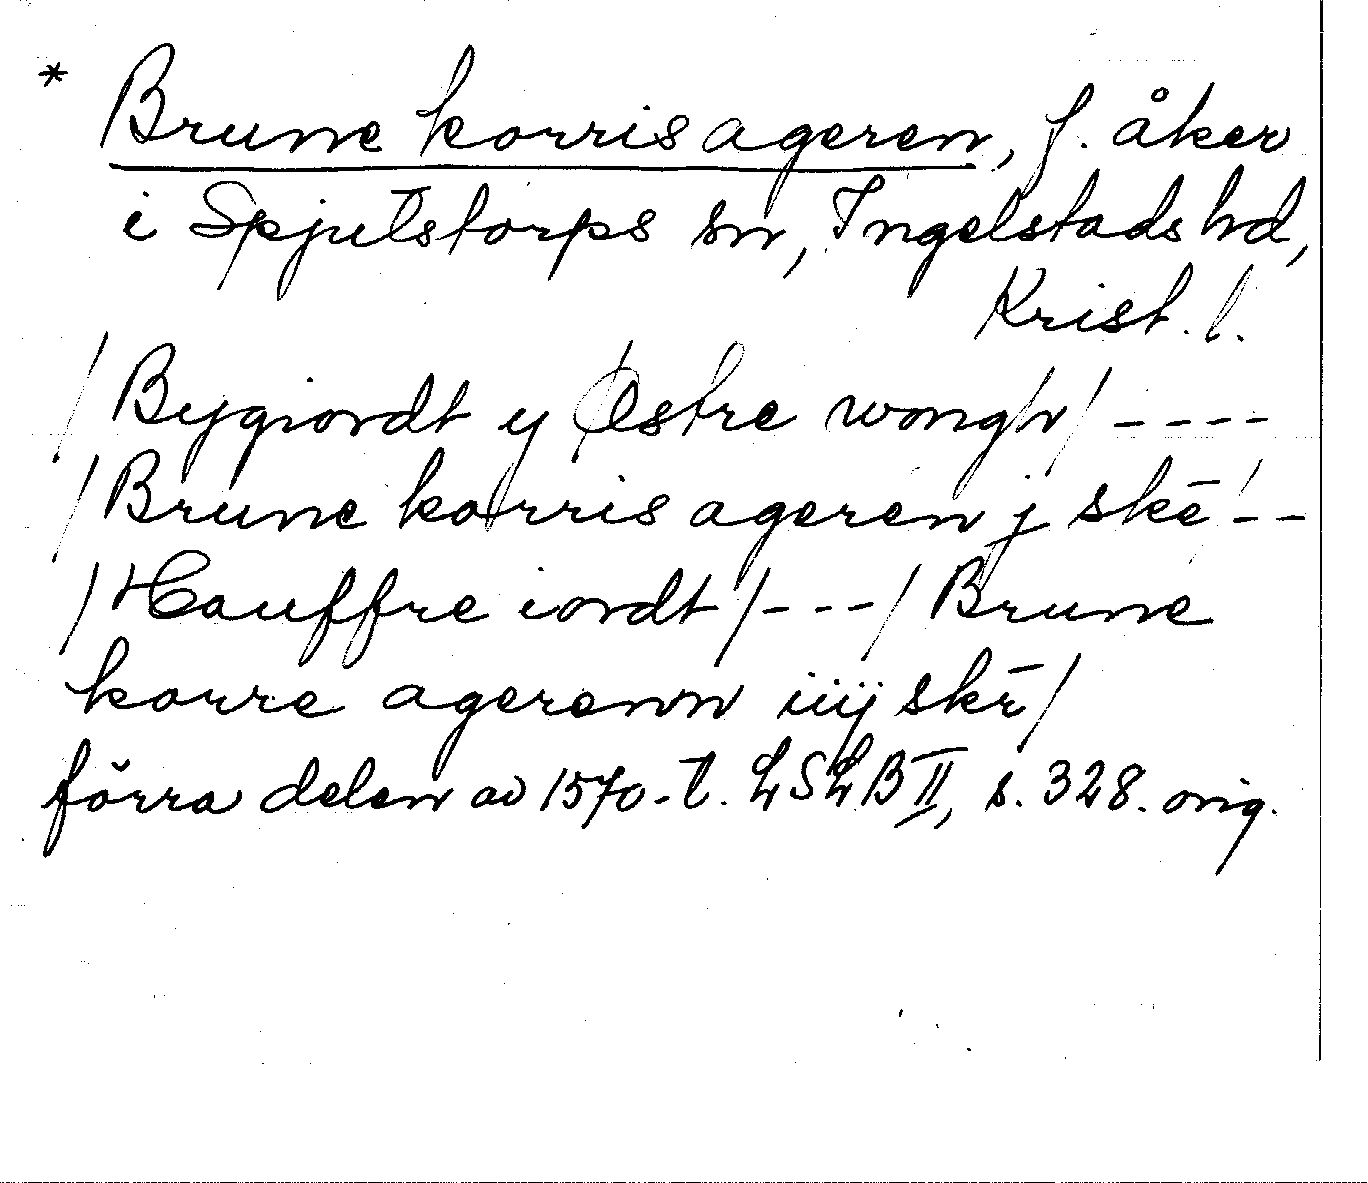 * Brune korris ageren, f. åker
i Spjutstorps sn, Ingelstads hd,
Krist. l.
/ Bygiordt y Østre wongh / ----
/ Brune korris ageren j skē / --
/ Hauffre iordt / --- / Brune
korre agerenn iiij skē /
förra delen av 1570-t. LSLB II, s. 328. orig.